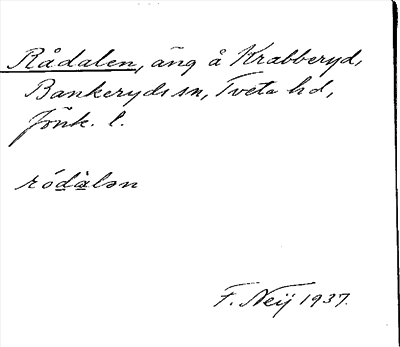 Rådalen, äng å Krabberyd,
Bankeryds sn, Tveta hd,
Jönk. l.
ródàlən
F. Neij 1937.